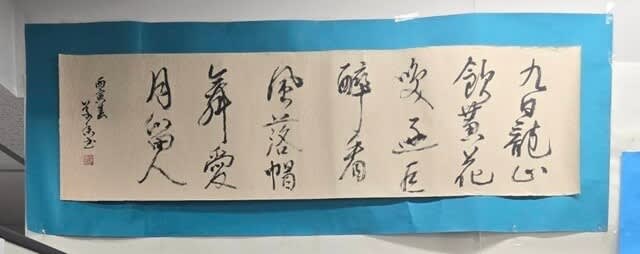 九日龍山
飲黄花
笑逐臣
醉看
風落帽
舞愛
月留人
丙寅春